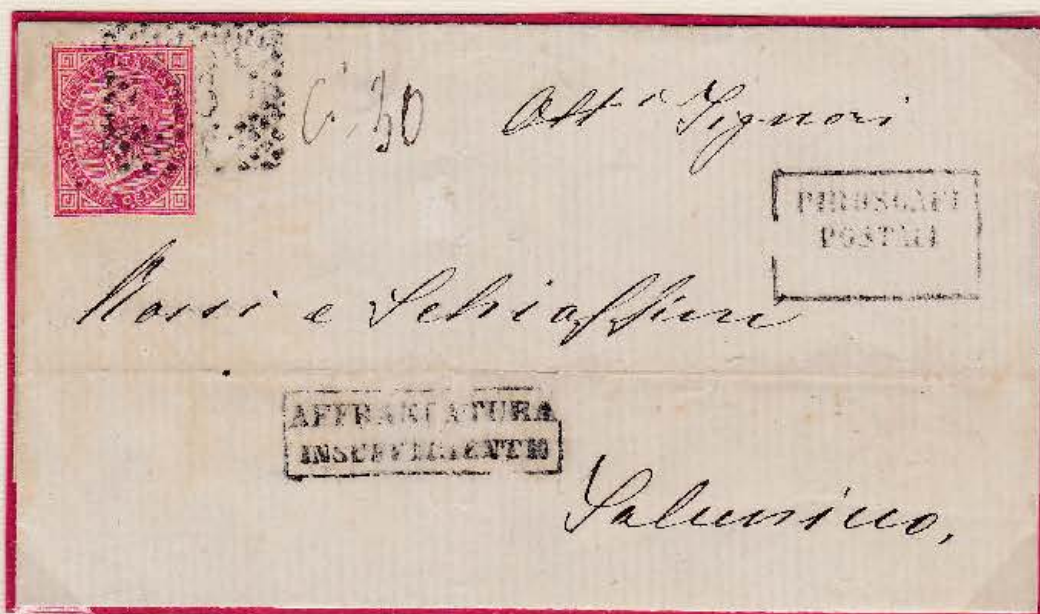 C. 30
Ott.i Signori
PIROSCAFI
POSTALI
Rossi e Schiaffini
AFFRANCATURA
INSUFFICIENTE